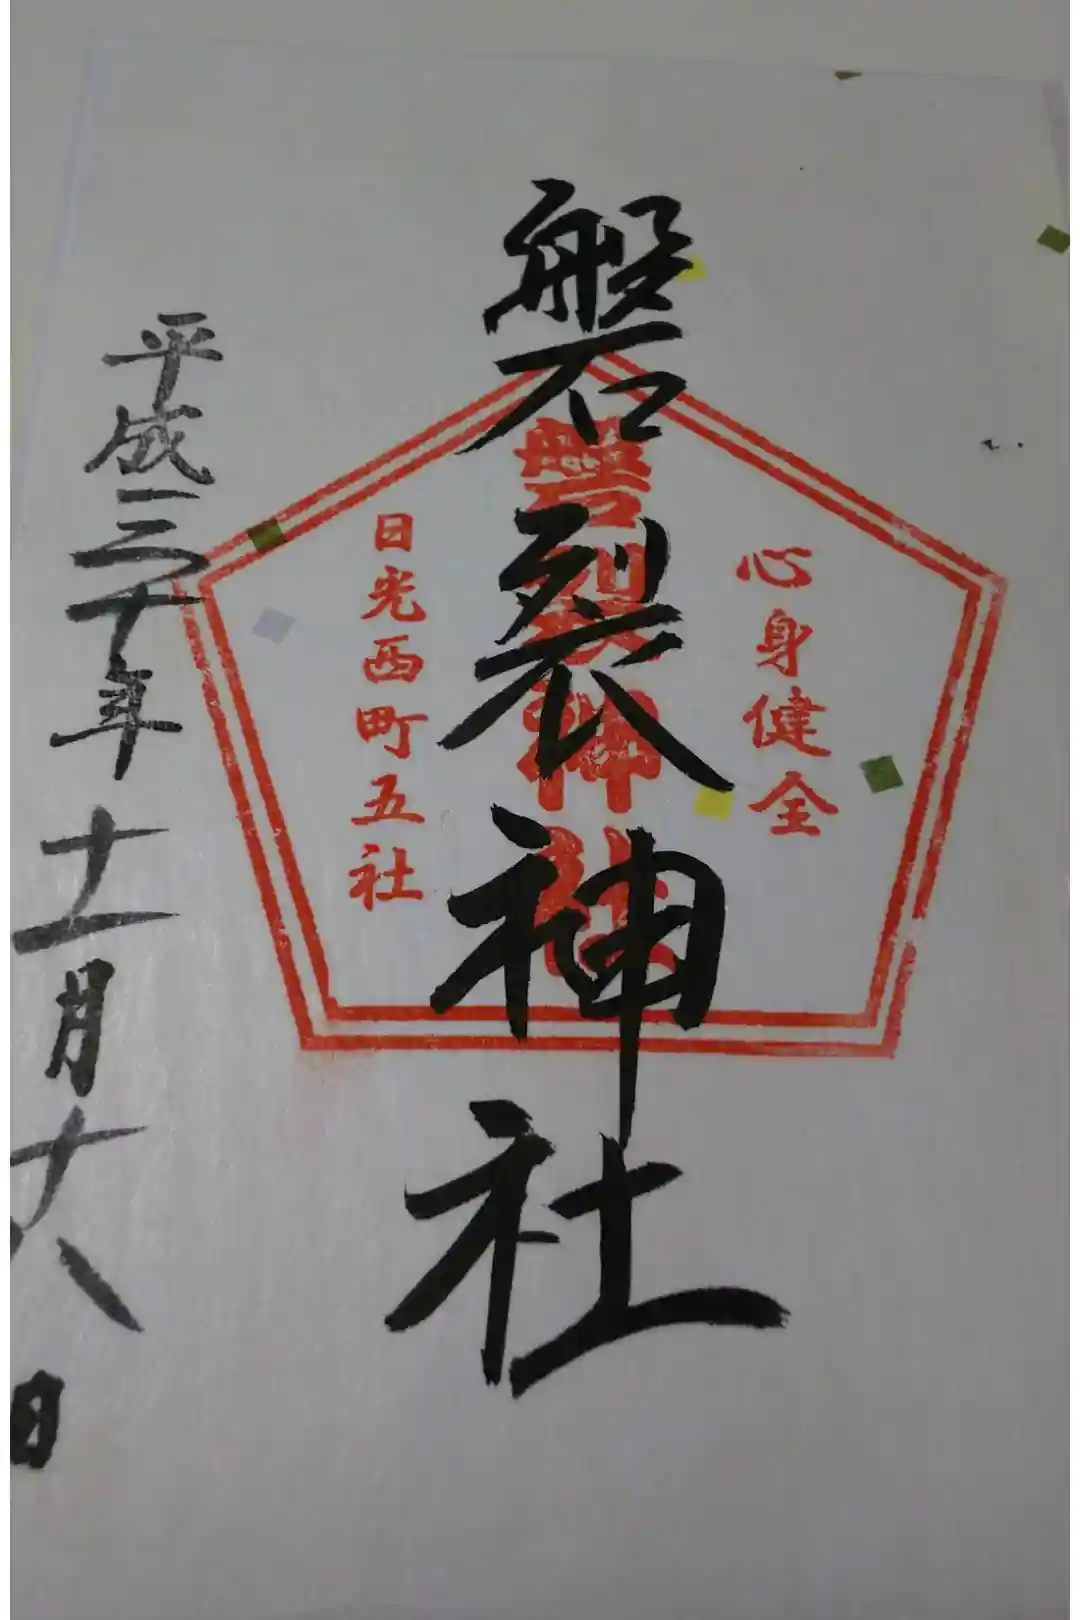 心身健全
磐裂神社
磐裂神社
日光西町五社
平成三十年十一月十八日